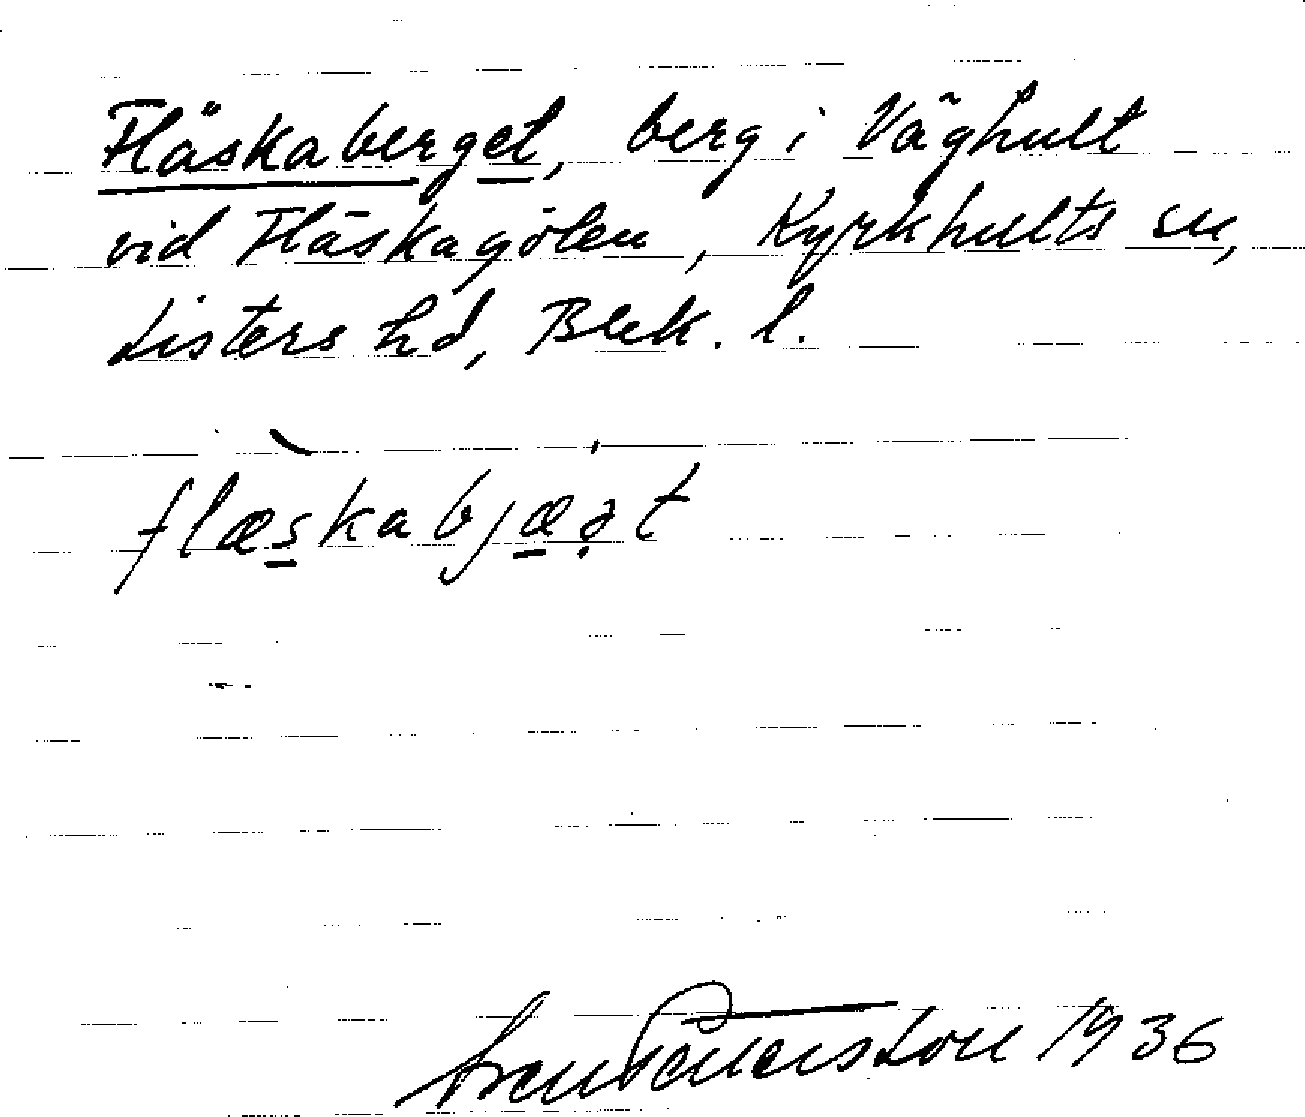 Fläskaberget, berg i Väghult
vid Fläskagölen, Kyrkhults sn,
Listers hd, Blek. l.
flæskabjæat
Sven Pettersson 1936